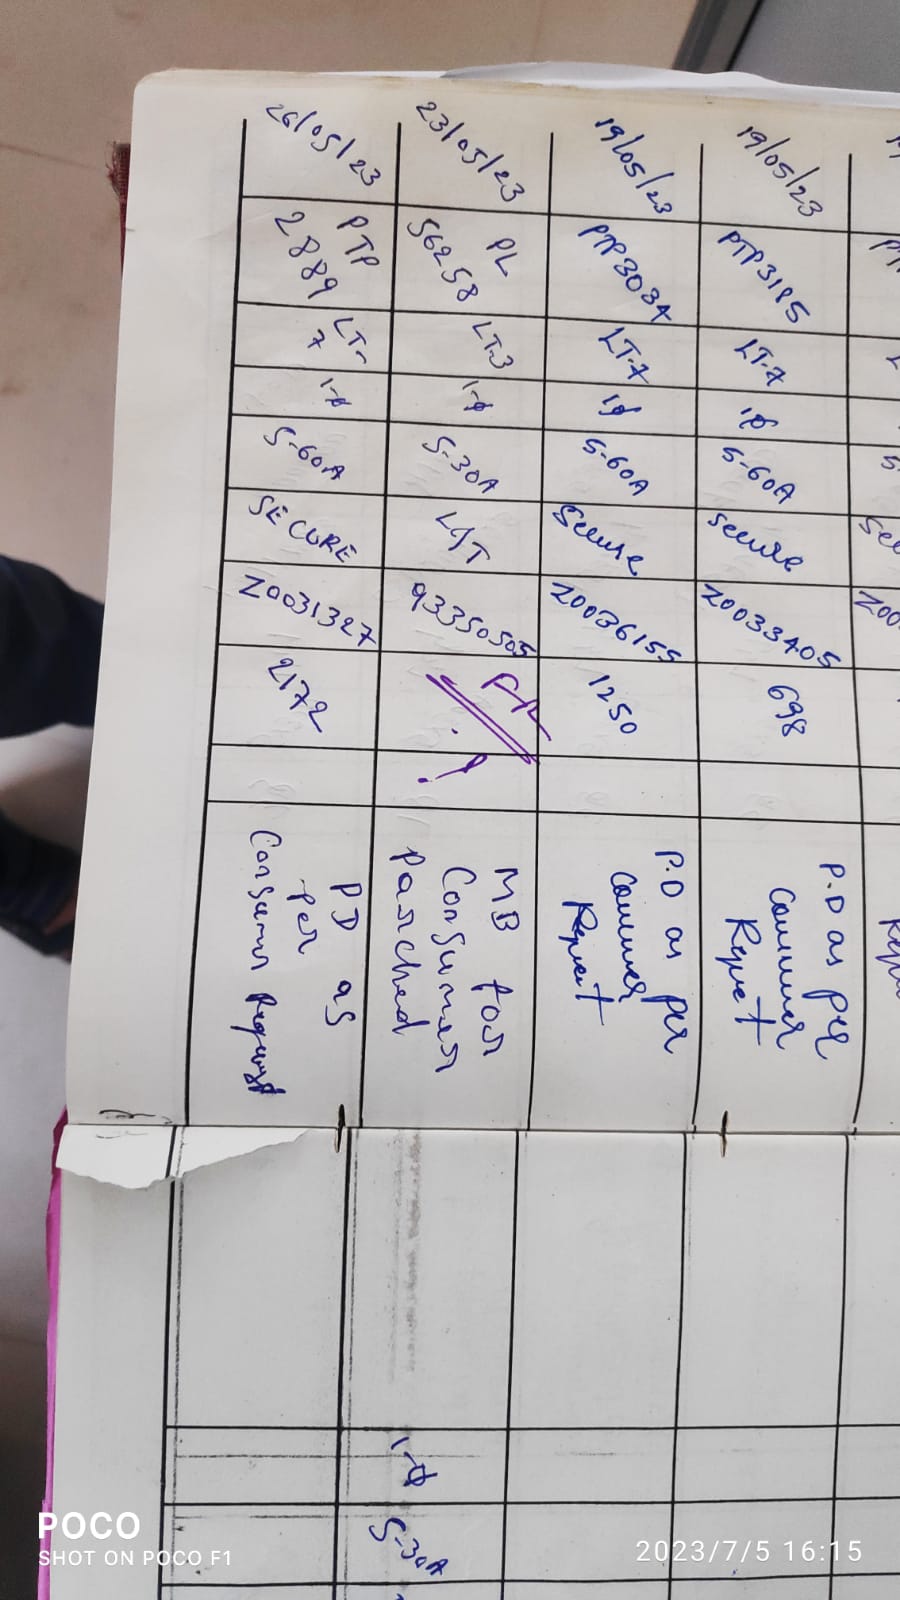 19/05/23
PTP3185
LT-7
1φ
5-60A
Secure
Z0033405
698
P.D as per
Consumer
Request
19/05/23
PTP3034
LT-7
1φ
5-60A
Secure
Z0036155
1250
P.D as per
Consumer
Request
23/05/23
PL
56258
LT-3
1-φ
5-30A
L/T
93350505
MB for
Consumer
parched
1-φ
5-30A
26/05/23
PTP
2889
LT-
7
1-φ
5-60A
SECURE
Z0031327
2172
PD as
per
Consumer Request
POCO
SHOT ON POCO F1
2023/7/5 16:15